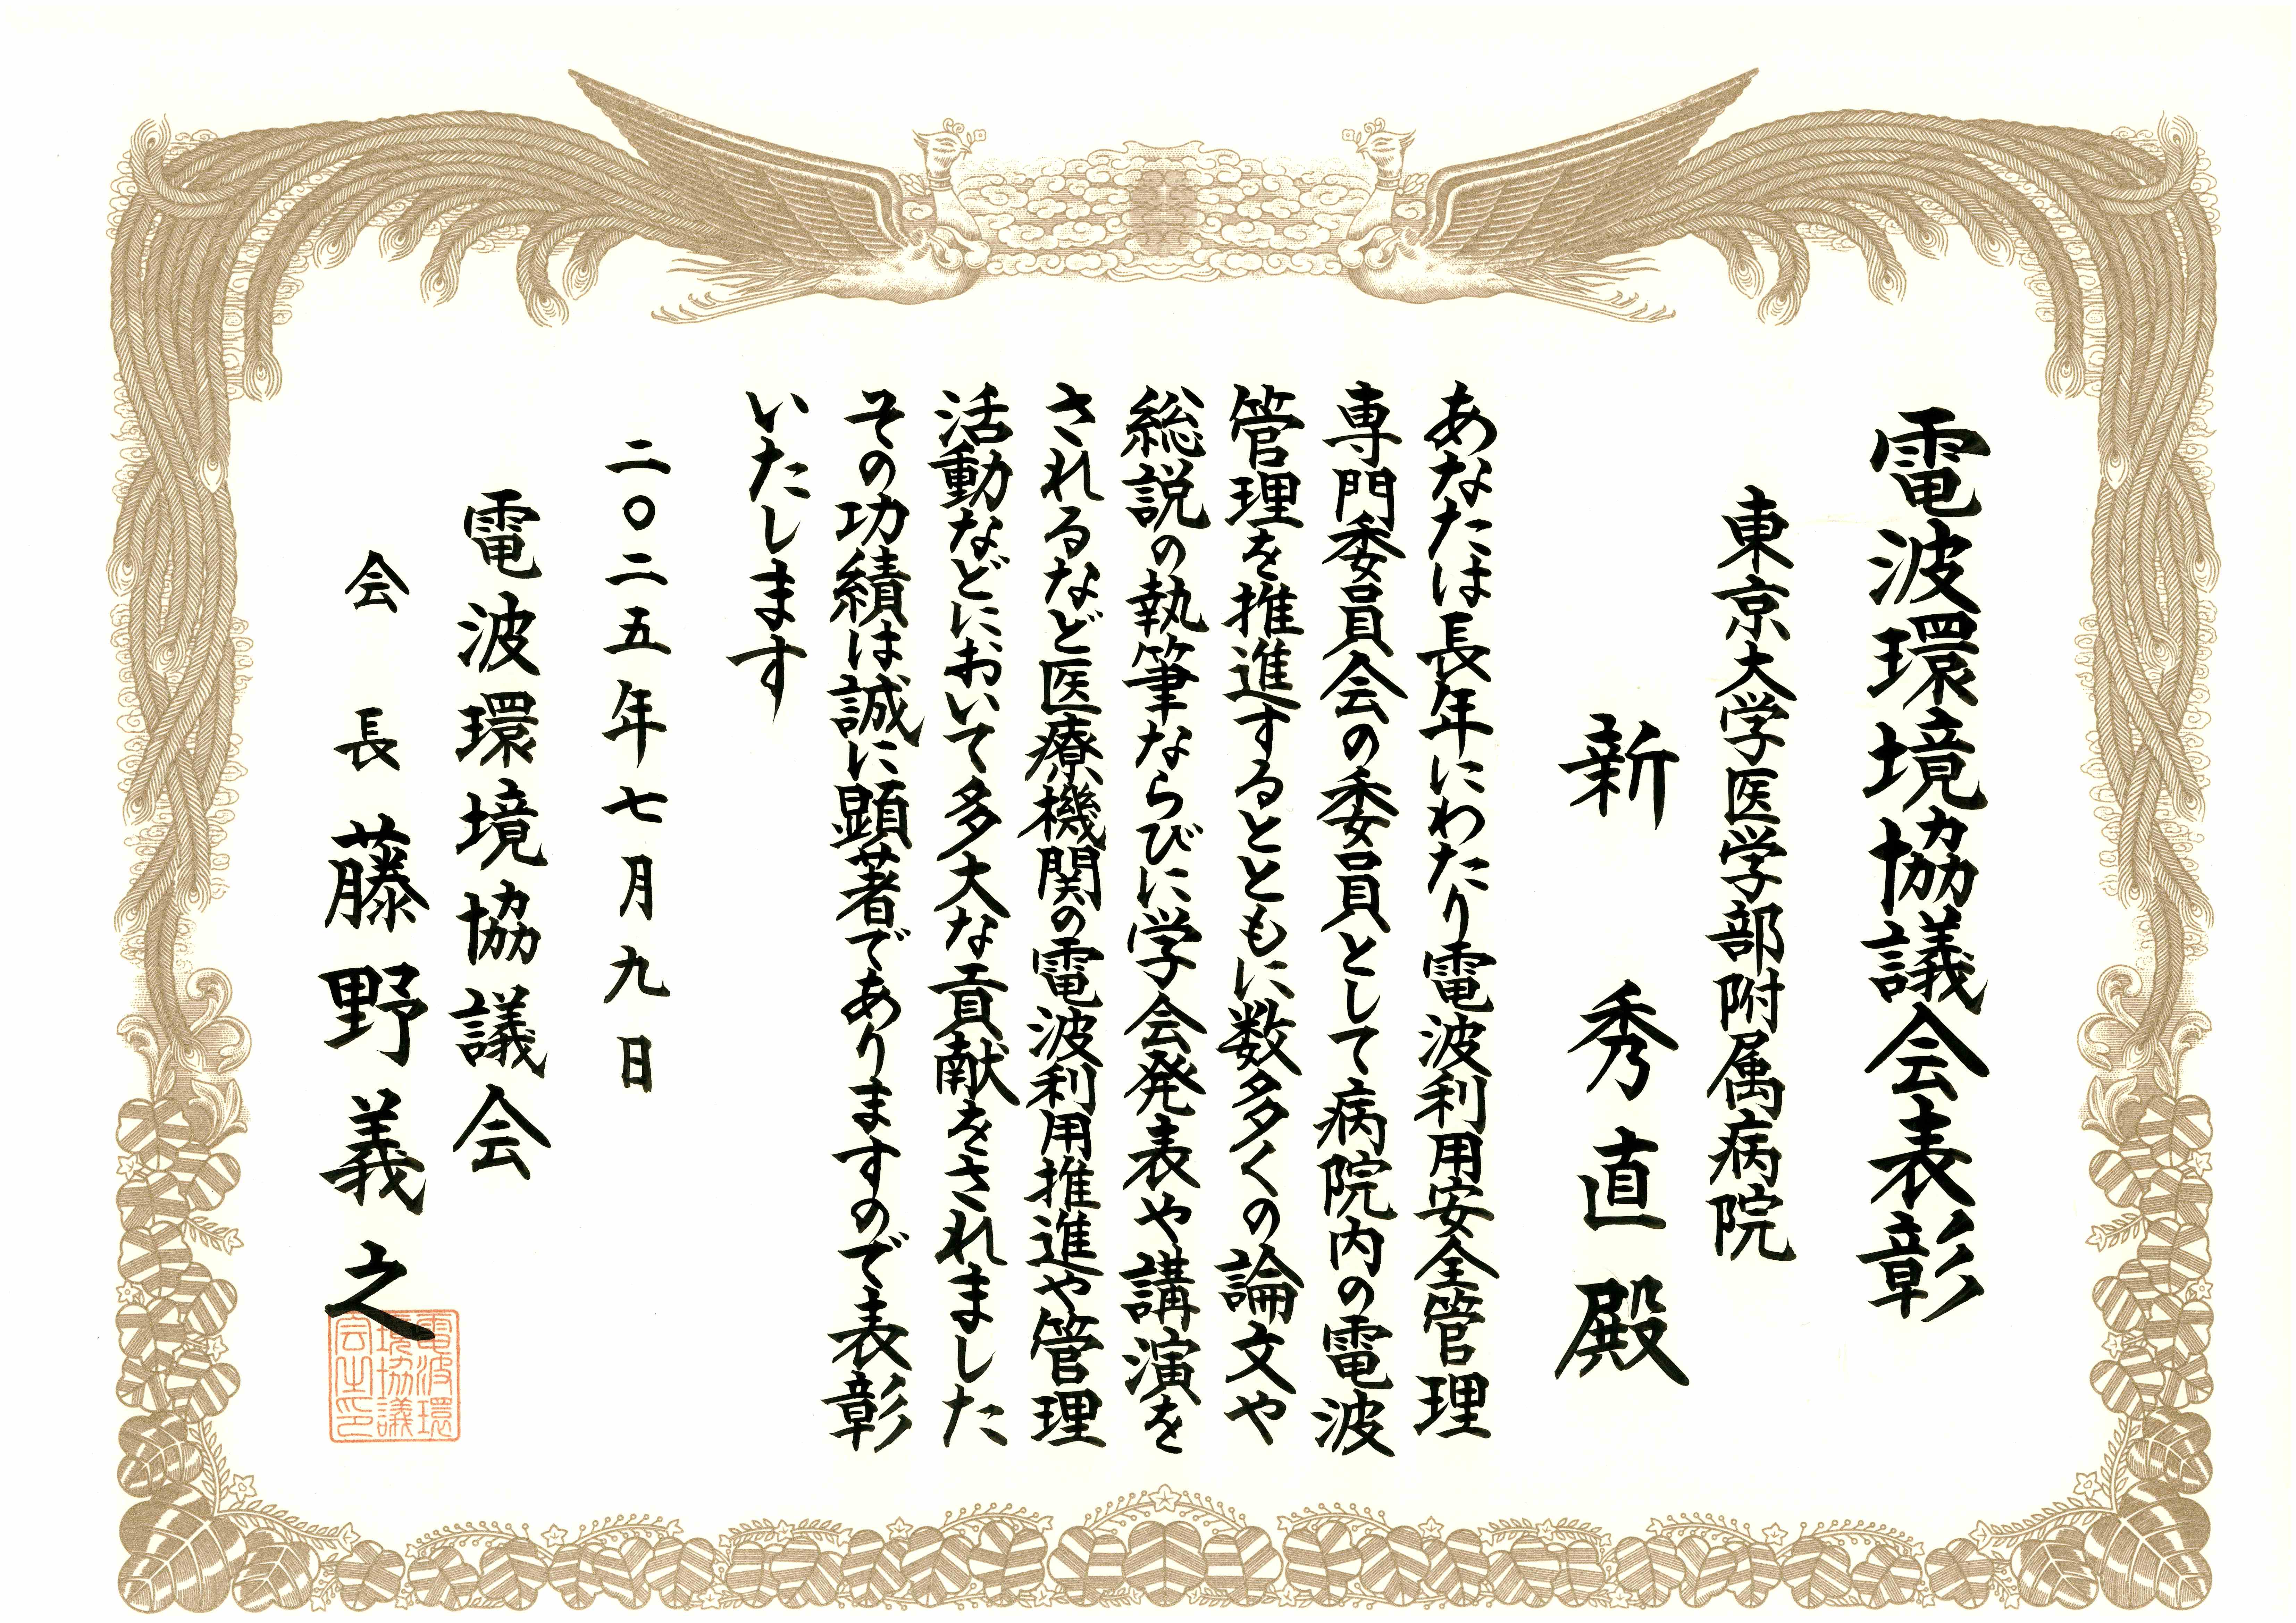 電波環境協議会表彰
東京大学医学部附属病院
新 秀直 殿
あなたは長年にわたり電波利用安全管理
専門委員会の委員として病院内の電波
管理を推進するとともに数多くの論文や
総説の執筆ならびに学会発表や講演を
されるなど医療機関の電波利用推進や管理
活動などにおいて多大な貢献をされました
その功績は誠に顕著でありますので表彰
いたします
二〇二五年七月九日
電波環境協議会
会長 藤野義之
電波環
境協議
会之印